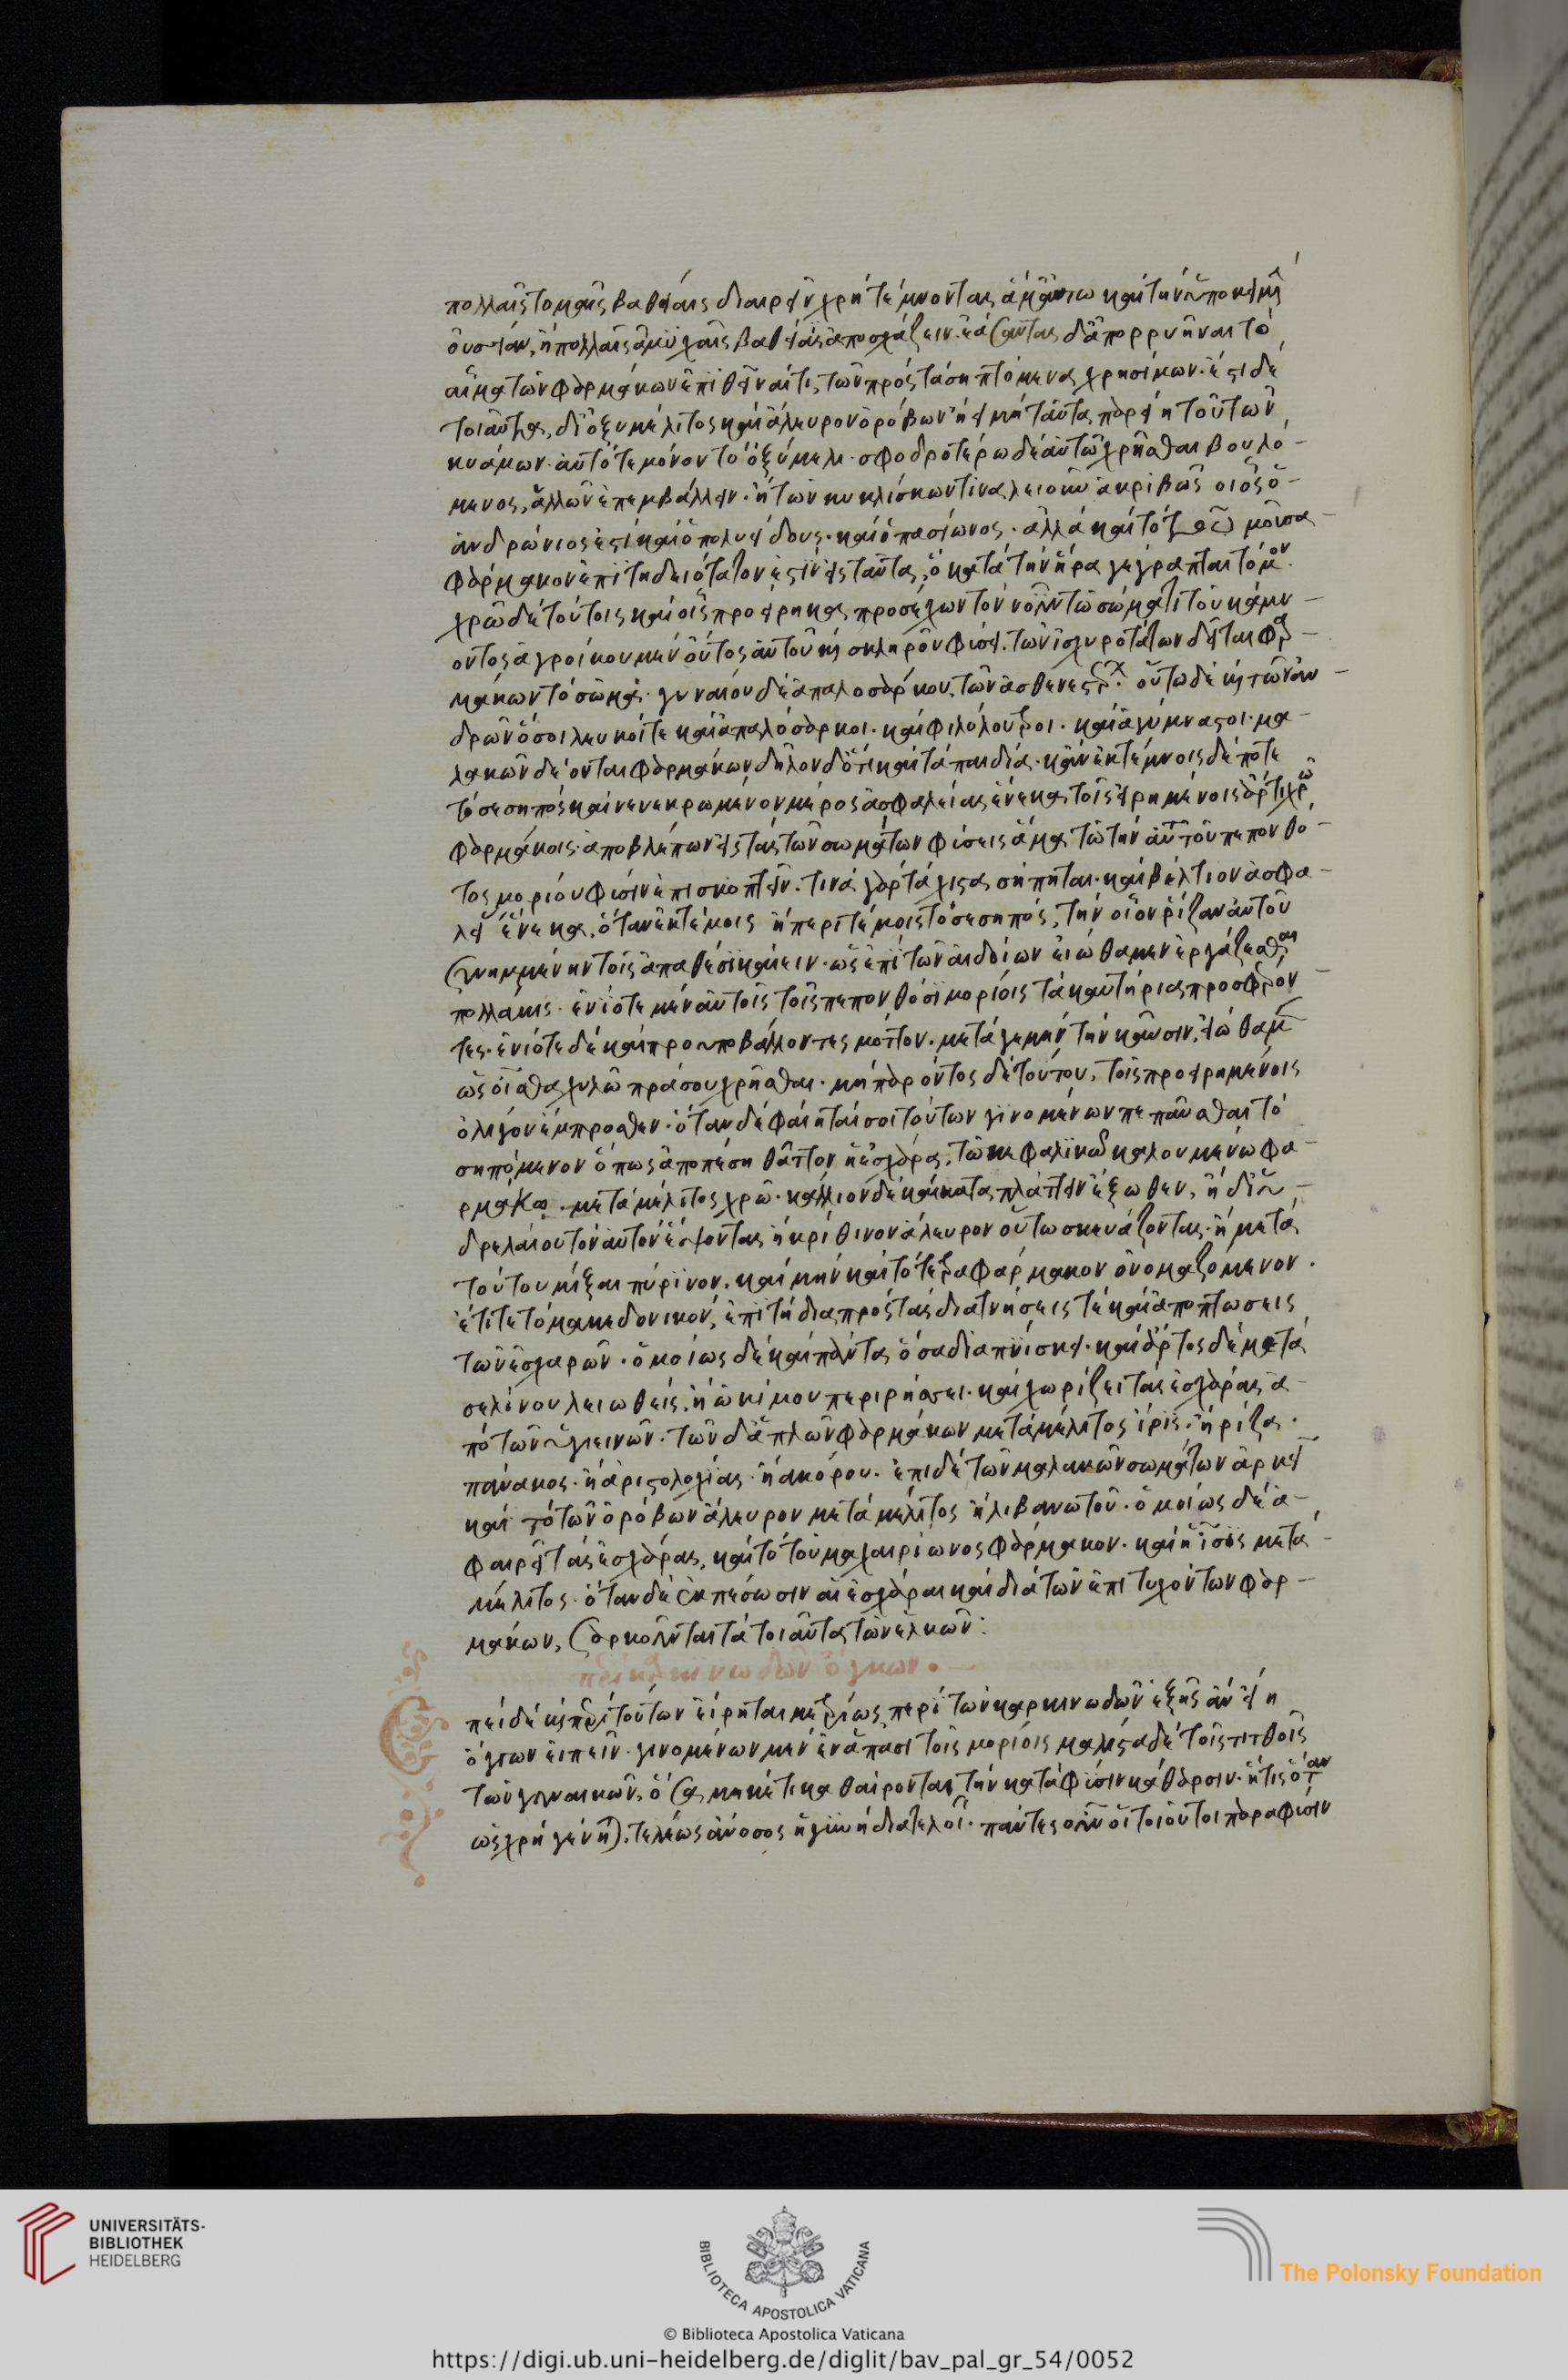 πολλαῖς τομαῖς βαθείαις διαιρεῖν χρὴ τέμνοντας ἅμα καὶ τὴν ὑποκειμένην
οὐσίαν, ἢ πολλαῖς ἀμυχαῖς βαθείαις ἀποσχάζειν. ἐάσαντας δ' ἀπορρυῆναι τὸ
αἷμα τῶν φαρμάκων ἐπιθεῖναί τι, τῶν πρὸς τὰ σηπτόμενα χρησίμων. ἔστι δὲ
τοιαῦτα, δι' ὀξυμέλιτος καὶ ἄλευρον ὀρόβων ἢ εἰ μὴ ταῦτα παρείη τοῦ τῶν
κυάμων. αὐτό τε μόνον τὸ ὀξύμελι. σφοδροτέρω δὲ αὐτῶ χρῆσθαι βουλό-
μενος, ἁλῶν ἐπεμβάλλειν. ἢ τῶν κυκλίσκων τινα λειοῦν ἀκριβῶς οἷος ὁ
ἀνδρώνιος ἐστὶ καὶ ὁ πολυείδους. καὶ ὁ πασίωνος. ἀλλὰ καὶ τὸ μοῦσα
φάρμακον ἐπιτηδειότατον ἐστὶν εἰς ταῦτα, ὃ κατὰ τὴν ἥρα γέγραπται τόμον.
χρῶ δὲ τούτοις καὶ οἷς προείρηκα προσέχων τὸν νοῦν τῶ σώματι τοῦ κάμν-
οντος ἀγροίκου μὲν ὄντος αὐτοῦ καὶ σκληροῦ φύσει. τῶν ἰσχυροτάτων δεῖται φαρ-
μάκων τὸ σῶμα. γυναίου δὲ ἁπαλοσάρκου, τῶν ἀσθενεστέρων. οὕτω δὲ καὶ τῶν ἀν-
δρῶν ὅσοι λευκοί τε καὶ ἁπαλόσαρκοι. καὶ φιλόλουτροι. καὶ ἀγύμναστοι. μα-
λακῶν δέονται φαρμάκων δῆλον δ' ὅτι καὶ τὰ παιδία. κἂν ἐκτέμνοις δέ ποτε
τὸ σεσηπὸς καὶ νενεκρωμένον μέρος ἀσφαλείας ἕνεκα τοῖς εἰρημένοις ἄρτι χρῶ
φαρμάκοις. ἀποβλέπων εἰς τὰς τῶν σωμάτων φύσεις ἅμα τῶ τὴν αὐτοῦ πεπονθό-
τος μορίου φύσιν ἐπισκοπεῖν. τινὰ γὰρ τάχιστα σήπηται. καὶ βέλτιον ἀσφα-
λεί ἕνεκα, ὅταν ἐκτέμοις ἢ περιτέμοις τὸ σεσηπός, τὴν οἷον ῥίζαν αὐτοῦ
συνημμένην τοῖς ἀπαθέσι καίειν. ὡς ἐπὶ τῶν αἰδοίων εἰώθαμεν ἐργάζεσθαι
πολλάκις. ἐνίοτε μὲν αὐτοῖς τοῖς πεπονθόσι μορίοις τὰ καυτήρια προσφέρον
τες. ἐνίοτε δὲ καὶ προυποβάλλοντες μότον. μετά γε μὴν τὴν καῦσιν, εἰώθαμεν
ὡς οἶσθα χυλῶ πράσου χρῆσθαι. μὴ παρόντος δὲ τούτου, τοῖς προειρημένοις
ὀλίγον ἔμπροσθεν. ὅταν δὲ φαίνηταί σοι τούτων γινομένων πεπαῦσθαι τὸ
σηπόμενον ὅπως ἀποπέση θᾶττον ἡ ἐσχάρα, τῶ κεφαλικῶ καλουμένω φα-
ρμάκω. μετὰ μέλιτος χρῶ. κάλλιον δὲ καὶ καταπλάττειν ἔξωθεν, ἢ δι' ὑ-
δρελαίου τὸν αὐτὸν ἕψοντας ἢ κρίθινον ἄλευρον οὕτω σκευάζοντας. ἢ μετὰ
τούτου μίξαι πύρινον. καὶ μὴν καὶ τὸ τετραφάρμακον ὀνομαζόμενον.
ἔτι τε τὸ μακεδονικόν, ἐπιτήδεια πρὸς τὰς διαπυήσεις τὲ καὶ ἀποπτώσεις
τῶν ἐσχαρῶν. ὁμοίως δὲ καὶ πάντα ὅσα διαπυίσκει. καὶ ἄρτος δὲ μετὰ
σελίνου λειωθείς, ἢ ὠκίμου περιρήσσει. καὶ χωρίζει τὰς ἐσχάρας ἀ-
πὸ τῶν ὑγιεινῶν. τῶν δ' ἁπλῶν φαρμάκων μετὰ μέλιτος ἴρις. ἢ ῥίζα.
πάνακος. ἢ ἀριστολοχίας. ἢ ἀκόρου. ἐπὶ δὲ τῶν μαλακῶν σωμάτων ἀρκεῖ
καὶ τὸ τῶν ὀρόβων ἄλευρον μετὰ μέλιτος ἢ λιβανωτοῦ. ὁμοίως δὲ ἀ-
φαιρεῖ τὰς ἐσχάρας, καὶ τὸ τοῦ μαχαιρίωνος φάρμακον. καὶ ἡ ἶσις μετὰ
μέλιτος. ὅταν δὲ ἐκπέσωσιν αἱ ἐσχάραι καὶ διὰ τῶν ἐπιτυχόντων φαρ-
μάκων, σαρκοῦνται τὰ τοιαῦτα τῶν ἑλκῶν:
περὶ καρκινωδῶν ὄγκων.
πεὶ δὲ καὶ περὶ τούτων εἴρηται μετρίως περὶ τῶν καρκινωδῶν ἑξῆς ἂν εἴη
ὄγκων εἰπεῖν. γινομένων μὲν ἐν ἅπασι τοῖς μορίοις μάλιστα δὲ τοῖς τιτθοῖς
τῶν γυναικῶν, ὅσαι μηκέτι καθαίρονται τὴν κατὰ φύσιν κάθαρσιν. ἥτις ὅταν
ὡς χρὴ γένηται, τελέως ἄνοσος ἡ γυνὴ διατελεῖ. πάντες οὖν οἱ τοιοῦτοι παρὰ φύσιν
UNIVERSITÄTS-
BIBLIOTHEK
HEIDELBERG
BIBLIOTECA APOSTOLICA VATICANA
The Polonsky Foundation
© Biblioteca Apostolica Vaticana
https://digi.ub.uni-heidelberg.de/diglit/bav_pal_gr_54/0052